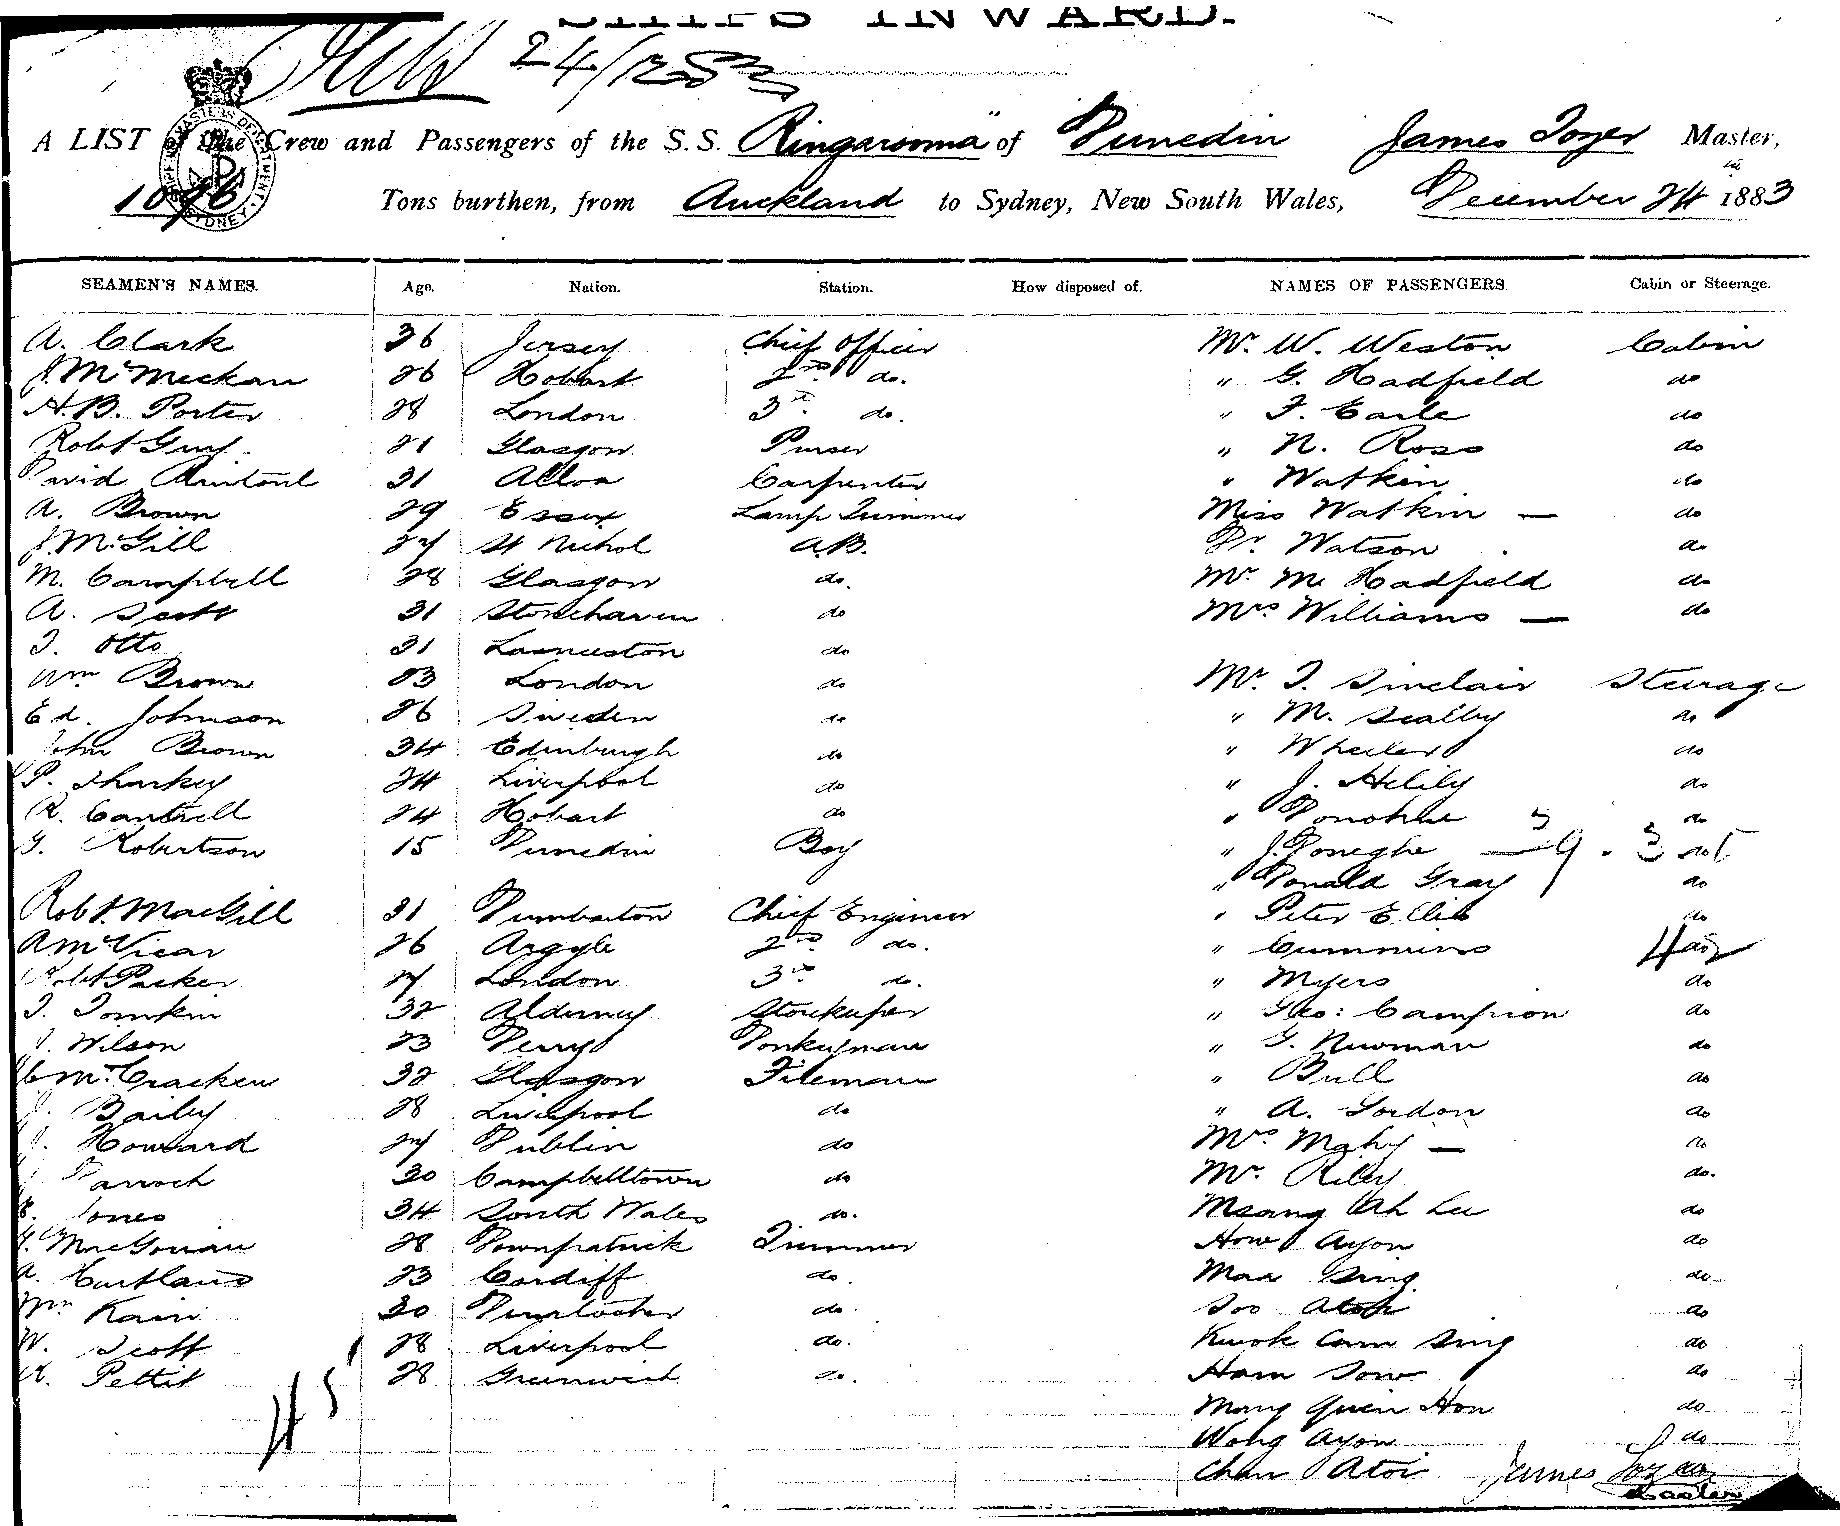 SHIPS INWARD.
24/12/83
A LIST of the Crew and Passengers of the S.S. "Ringarooma" of Dunedin James Tozer Master,
1096 Tons burthen, from Auckland to Sydney, New South Wales, December 24th 1883
SEAMEN'S NAMES. Age. Nation. Station. How disposed of. NAMES OF PASSENGERS. Cabin or Steerage.
A. Clark 36 Jersey Chief Officer Mr. W. Weston Cabin
J. McMeckan 26 Hobart 2nd do. " G. Hadfield do
H. B. Porter 28 London 3rd do. " F. Earle do
Robt Guy 21 Glasgow Purser " N. Ross do
David Rintoul 31 Alloa Carpenter " Watkin do
A. Brown 29 Essex Lamp Trimmer Miss Watkin — do
J. McGill 27 St Nichol A.B. Dr. Watson do
M. Campbell 28 Glasgow do. Mr. M. Hadfield do
A. Scott 31 Stonehaven do Mrs Williams — do
J. Otto 31 Launceston do
Wm Brown 23 London do Mr. T. Sinclair Steerage
Ed. Johnson 26 Sweden do " M. Scalby do
John Brown 34 Edinburgh do " Wheeler do
P. Sharkey 24 Liverpool do " J. Helily do
R. Cantrell 24 Hobart do " Donohue do
G. Robertson 15 Dunedin Boy " J. Doneghe do
" Donald Gray do
Robt. MacGill 31 Dumbarton Chief Engineer " Peter Ellis do
A McVicar 26 Argyle 2nd do. " Cummins do
Robt Parker 27 London 3rd do. " Myers do
T. Tomkin 32 Alderney Storekeeper " Geo: Campion do
J. Wilson 23 Derry Donkeyman " G. Newman do
C McCracken 32 Glasgow Fireman " Bull do
J. Baily 28 Liverpool do " A. Gordon do
J. Howard 27 Dublin do Mrs Mahy — do
J. Darroch 30 Campbelltown do Mr. Riley do.
Jones 34 South Wales do. Ah Lee do
MacGowan 28 Downpatrick Trimmer How Ayon do
A. 23 Cardiff do. Maa Sing do
Wm Kain 30 do. Soo Atoi do
W. Scott 28 Liverpool do. Kwok Cam Sing do
R. Pettit 28 Greenwich do. Ham Sow do
Mang Quen Hon do
Wong Ayon do
Chan Atoi do
James Tozer
Master